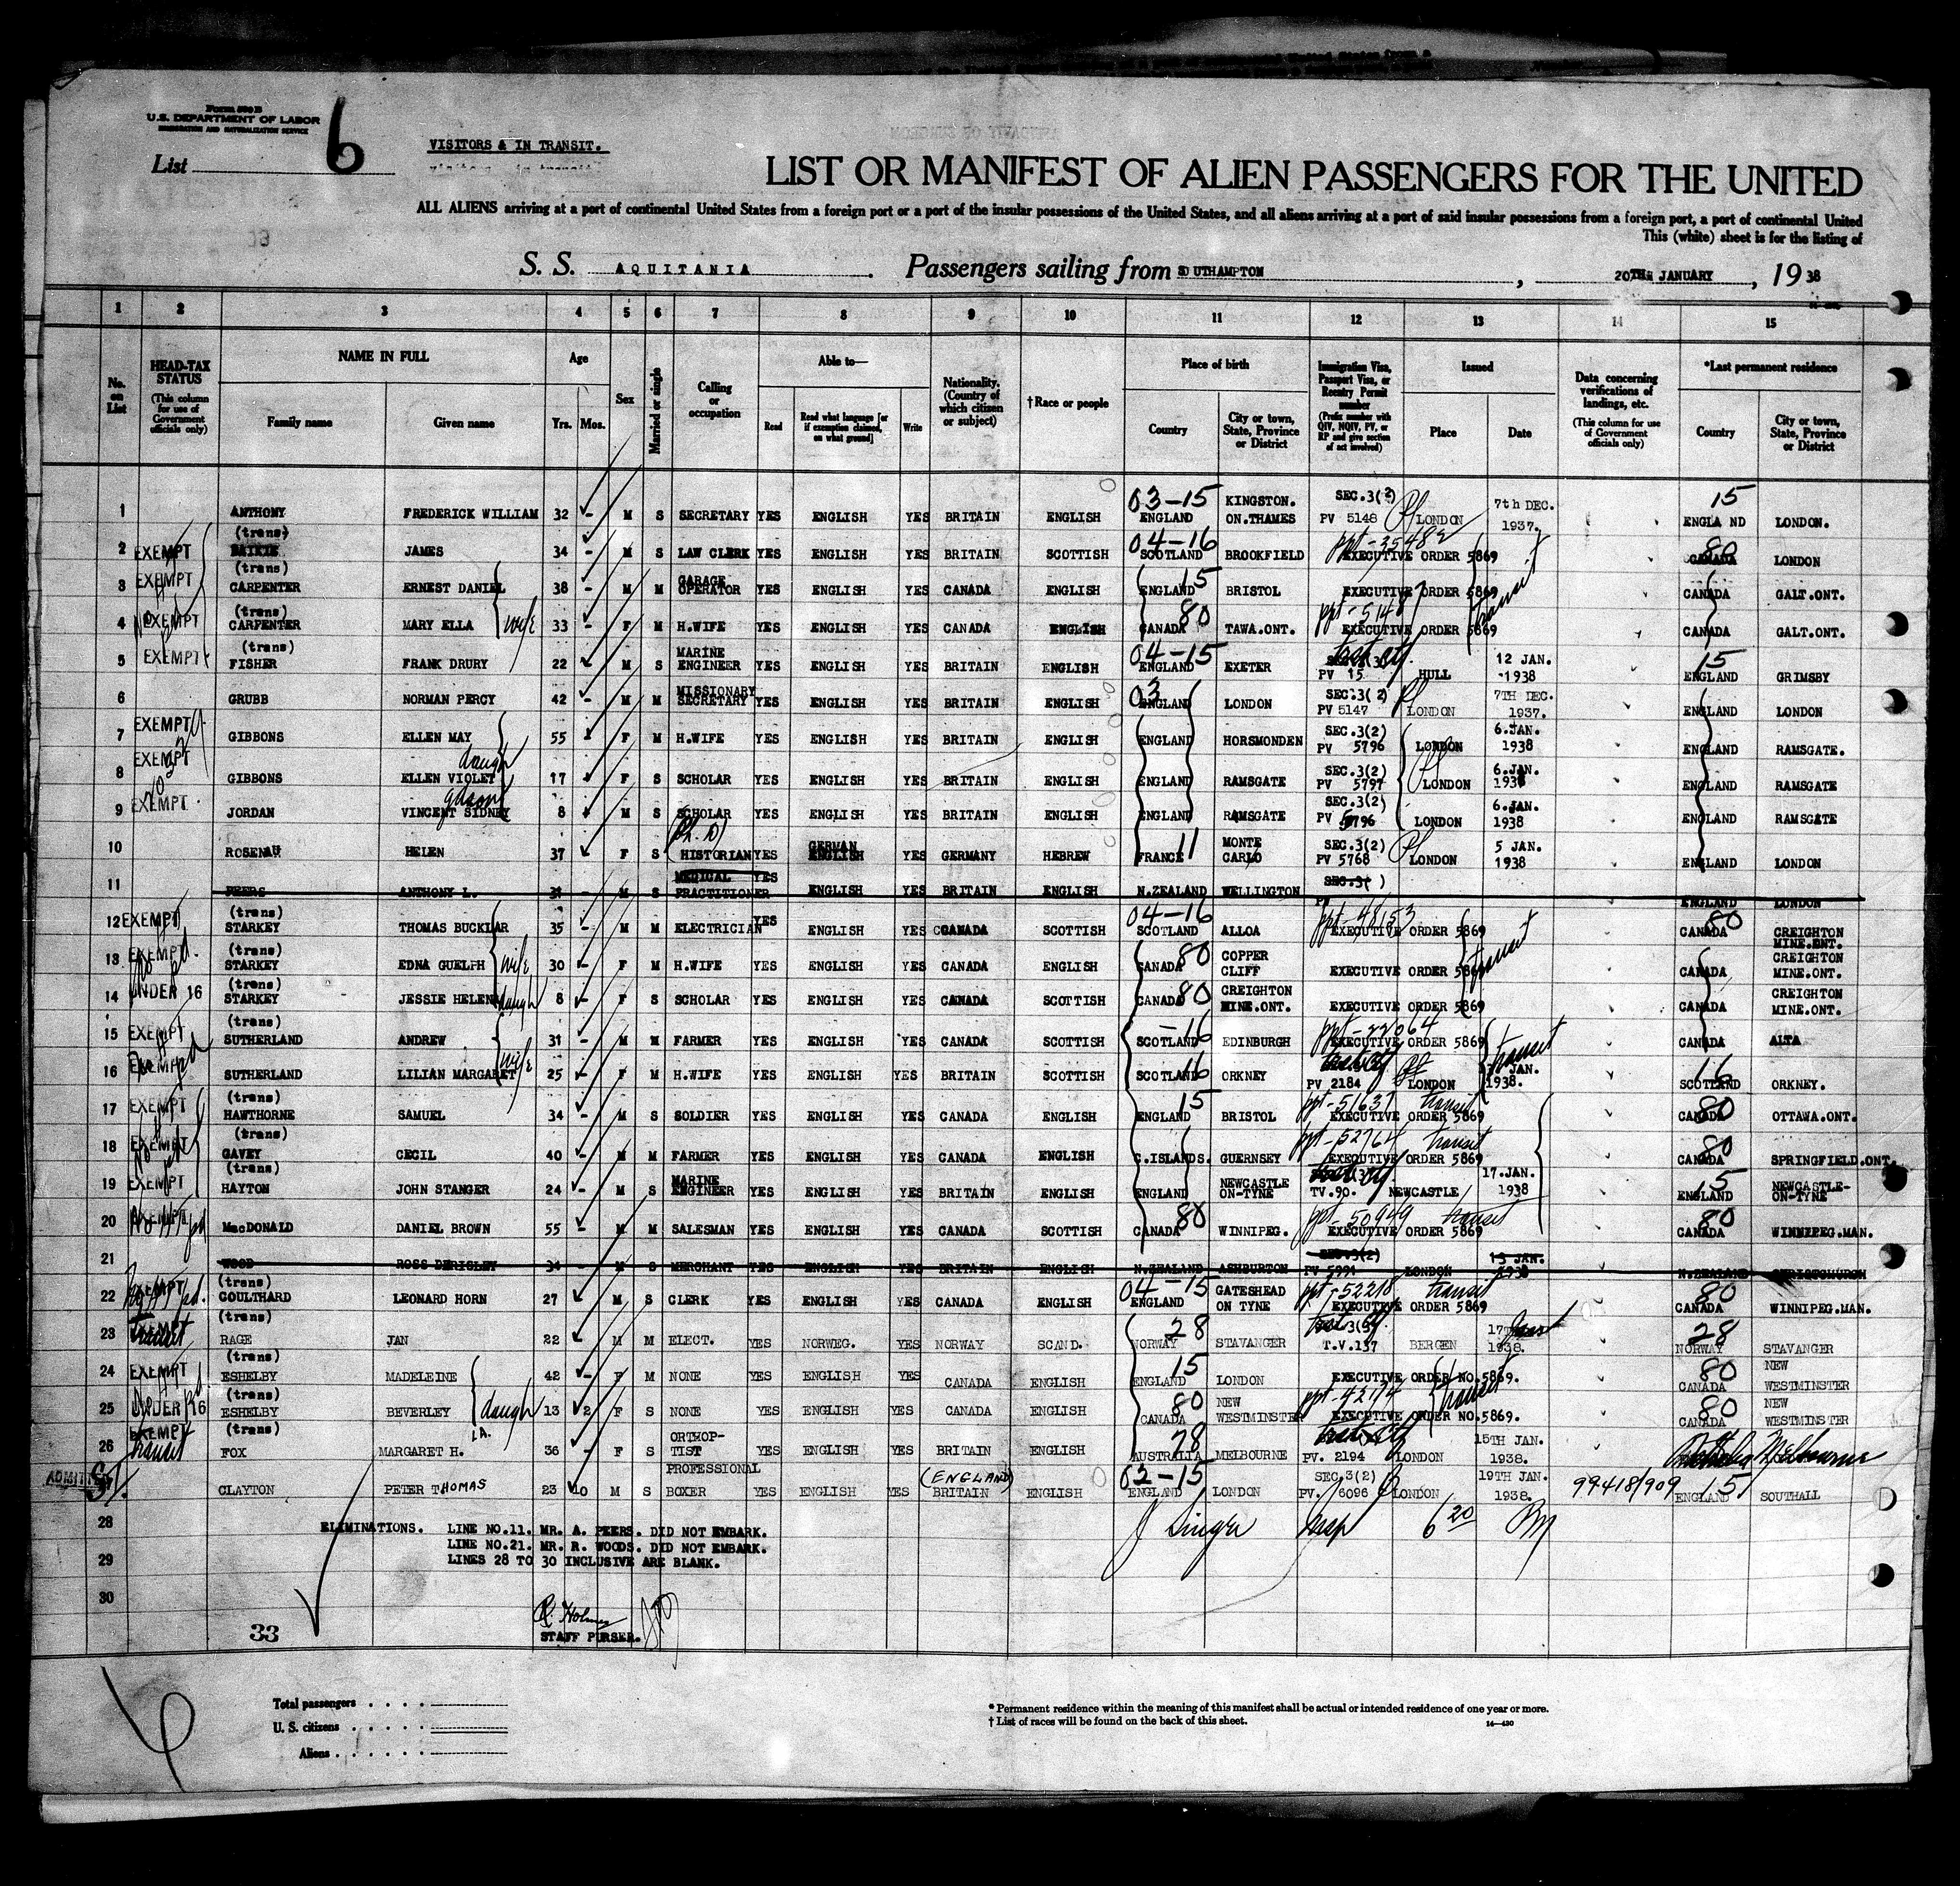 Form 500 B
U.S. DEPARTMENT OF LABOR
IMMIGRATION AND NATURALIZATION SERVICE
List 6
VISITORS & IN TRANSIT.
LIST OR MANIFEST OF ALIEN PASSENGERS FOR THE UNITED
ALL ALIENS arriving at a port of continental United States from a foreign port or a port of the insular possessions of the United States, and all aliens arriving at a port of said insular possessions from a foreign port, a port of continental United
This (white) sheet is for the listing of
S. S. AQUITANIA. Passengers sailing from SOUTHAMPTON, 20TH JANUARY, 19 38
1 2 3 4 5 6 7 8 9 10 11 12 13 14 15
No. on List
HEAD-TAX STATUS (This column for use of Government officials only)
NAME IN FULL Family name Given name
Age Yrs. Mos.
Sex
Married or single
Calling or occupation
Able to— Read Read what language [or if exemption claimed, on what ground] Write
Nationality. (Country of which citizen or subject)
†Race or people
Place of birth Country City or town, State, Province or District
Immigration Visa, Passport Visa, or Reentry Permit number (Prefix number with QIV, NQIV, PV, or RP and give section of act involved)
Issued Place Date
Data concerning verifications of landings, etc. (This column for use of Government officials only)
*Last permanent residence Country City or town, State, Province or District
1 ANTHONY FREDERICK WILLIAM 32 - M S SECRETARY YES ENGLISH YES BRITAIN ENGLISH 03-15 ENGLAND KINGSTON. ON.THAMES SEC.3(2) PV 5148 LONDON 7th DEC. 1937. 15 ENGLA ND LONDON.
2 EXEMPT (trans) BAIKIE JAMES 34 - M S LAW CLERK YES ENGLISH YES BRITAIN SCOTTISH 04-16 SCOTLAND BROOKFIELD ppt-35482 EXECUTIVE ORDER 5869 80 CANADA LONDON
3 EXEMPT (trans) CARPENTER ERNEST DANIEL 38 - M M GARAGE OPERATOR YES ENGLISH YES CANADA ENGLISH 15 ENGLAND BRISTOL EXECUTIVE ORDER 5869 transit CANADA GALT.ONT.
4 EXEMPT (trans) CARPENTER MARY ELLA wife 33 - F M H.WIFE YES ENGLISH YES CANADA ENGLISH 80 CANADA TAWA.ONT. EXECUTIVE ORDER 5869 CANADA GALT.ONT.
5 EXEMPT (trans) FISHER FRANK DRURY 22 M S MARINE ENGINEER YES ENGLISH YES BRITAIN ENGLISH 04-15 ENGLAND EXETER PV 15 HULL 12 JAN. 1938 15 ENGLAND GRIMSBY
6 GRUBB NORMAN PERCY 42 - M M MISSIONARY SECRETARY YES ENGLISH YES BRITAIN ENGLISH 03 ENGLAND LONDON SEC.3(2) PV 5147 LONDON 7TH DEC. 1937. ENGLAND LONDON
7 EXEMPT GIBBONS ELLEN MAY 55 - F M H.WIFE YES ENGLISH YES BRITAIN ENGLISH ENGLAND HORSMONDEN SEC.3(2) PV 5796 LONDON 6.JAN. 1938 ENGLAND RAMSGATE.
8 EXEMPT GIBBONS ELLEN VIOLET daugh 17 F S SCHOLAR YES ENGLISH YES BRITAIN ENGLISH ENGLAND RAMSGATE SEC.3(2) PV 5797 LONDON 6.JAN. 1938 ENGLAND RAMSGATE
9 EXEMPT JORDAN VINCENT SIDNEY gdson 8 M S SCHOLAR YES ENGLISH YES BRITAIN ENGLISH ENGLAND RAMSGATE SEC.3(2) PV 5796 LONDON 6.JAN. 1938 ENGLAND RAMSGATE
10 ROSENAU HELEN 37 F S (Ph. D) HISTORIAN YES GERMAN ENGLISH YES GERMANY HEBREW FRANCE 11 MONTE CARLO SEC.3(2) PV 5768 LONDON 5 JAN. 1938 ENGLAND LONDON
11 PEERS ANTHONY L. 31 - M S MEDICAL PRACTITIONER YES ENGLISH YES BRITAIN ENGLISH N.ZEALAND WELLINGTON SEC.3( ) PV ENGLAND LONDON
12 EXEMPT (trans) STARKEY THOMAS BUCKLAR 35 - M M ELECTRICIAN YES ENGLISH YES CANADA SCOTTISH 04-16 SCOTLAND ALLOA ppt-48153 EXECUTIVE ORDER 5869 80 CANADA CREIGHTON MINE.ONT.
13 EXEMPT (trans) STARKEY EDNA GUELPH wife 30 - F M H.WIFE YES ENGLISH YES CANADA ENGLISH 80 CANADA COPPER CLIFF EXECUTIVE ORDER 5869 transit CANADA CREIGHTON MINE.ONT.
14 UNDER 16 (trans) STARKEY JESSIE HELEN daugh 8 - F S SCHOLAR YES ENGLISH YES CANADA SCOTTISH CANADA 80 CREIGHTON MINE.ONT. EXECUTIVE ORDER 5869 CANADA CREIGHTON MINE.ONT.
15 EXEMPT (trans) SUTHERLAND ANDREW 31 - M M FARMER YES ENGLISH YES CANADA SCOTTISH -16 SCOTLAND EDINBURGH ppt-22064 EXECUTIVE ORDER 5869 transit CANADA ALTA
16 EXEMPT SUTHERLAND LILIAN MARGARET wife 25 - F M H.WIFE YES ENGLISH YES BRITAIN SCOTTISH SCOTLAND 16 ORKNEY PV 2184 LONDON JAN. 1938. 16 SCOTLAND ORKNEY.
17 EXEMPT (trans) HAWTHORNE SAMUEL 34 - M S SOLDIER YES ENGLISH YES CANADA ENGLISH 15 ENGLAND BRISTOL ppt-51637 transit EXECUTIVE ORDER 5869 80 CANADA OTTAWA.ONT.
18 EXEMPT (trans) GAVEY CECIL 40 - M M FARMER YES ENGLISH YES CANADA ENGLISH C.ISLANDS. GUERNSEY ppt-52764 transit EXECUTIVE ORDER 5869 80 CANADA SPRINGFIELD.ONT.
19 EXEMPT (trans) HAYTON JOHN STANGER 24 - M S MARINE ENGINEER YES ENGLISH YES BRITAIN ENGLISH ENGLAND NEWCASTLE ON-TYNE TV.90. NEWCASTLE 17.JAN. 1938 15 ENGLAND NEWCASTLE-ON-TYNE
20 EXEMPT MacDONALD DANIEL BROWN 55 - M M SALESMAN YES ENGLISH YES CANADA SCOTTISH 80 CANADA WINNIPEG. ppt-50949 transit EXECUTIVE ORDER 5869 80 CANADA WINNIPEG.MAN.
21 WOOD ROSS DERISLEY 34 - M S MERCHANT YES ENGLISH YES BRITAIN ENGLISH N.ZEALAND ASHBURTON SEC.3(2) PV 5991 LONDON 13 JAN. 1938 N.ZEALAND CHRISTCHURCH
22 EXEMPT (trans) COULTHARD LEONARD HORN 27 M S CLERK YES ENGLISH YES CANADA ENGLISH 04-15 ENGLAND GATESHEAD ON TYNE ppt-52218 transit EXECUTIVE ORDER 5869 80 CANADA WINNIPEG.MAN.
23 EXEMPT transit (trans) RAGE JAN 22 M M ELECT. YES NORWEG. YES NORWAY SCAND. 28 NORWAY STAVANGER T.V.137 BERGEN 17TH 1938. 28 NORWAY STAVANGER
24 EXEMPT (trans) ESHELBY MADELEINE 42 - F M NONE YES ENGLISH YES CANADA ENGLISH 15 ENGLAND LONDON EXECUTIVE ORDER NO.5869. 80 CANADA NEW WESTMINSTER
25 UNDER 16 (trans) ESHELBY BEVERLEY daugh 13 2 F S NONE YES ENGLISH YES CANADA ENGLISH 80 CANADA NEW WESTMINSTER ppt-42774 transit EXECUTIVE ORDER NO.5869. 80 CANADA NEW WESTMINSTER
26 EXEMPT transit (trans) FOX MARGARET H. 36 - F S ORTHOP-TIST YES ENGLISH YES BRITAIN ENGLISH 78 AUSTRALIA MELBOURNE PV. 2194 LONDON 15TH JAN. 1938. Australia Melbourne
ADMITTED CLAYTON PETER THOMAS 23 10 M S PROFESSIONAL BOXER YES ENGLISH YES (ENGLAND) BRITAIN ENGLISH 02-15 ENGLAND LONDON SEC.3(2) PV. 6096 LONDON 19TH JAN. 1938. 99418/909 ENGLAND 15 SOUTHALL
28 ELIMINATIONS. LINE NO.11. MR. A. PEERS. DID NOT EMBARK.
LINE NO.21. MR. R. WOODS. DID NOT EMBARK.
29 LINES 28 TO 30 INCLUSIVE ARE BLANK.
J Singer Insp 6 20 PM
30
R. Holmes
STAFF PURSER.
33
Total passengers
U. S. citizens
Aliens
* Permanent residence within the meaning of this manifest shall be actual or intended residence of one year or more.
† List of races will be found on the back of this sheet.
14—430